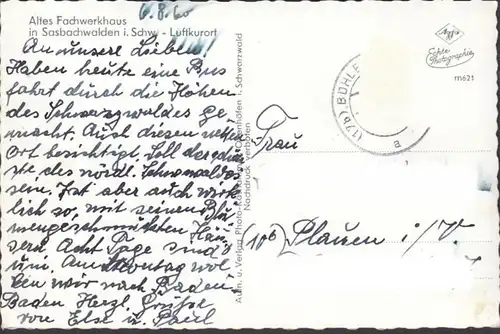 6.8.60
Altes Fachwerkhaus
in Sasbachwalden i. Schw. - Luftkurort
An unsere Lieben!
Haben heute eine Bus
fahrt durch die Höhen
des Schwarzwaldes ge
macht. Auch diesen netten
Ort besichtigt. Soll der schön
ste des nördl. Schwarzwaldes
sein. Ist aber auch wirk
lich so, mit seinen Blu
mengeschmückten Häu
sern. Acht Tage sind
um. Am Montag wol
len wir nach Baden
Baden. Herzl. Grüße
von Else u. Paul
Aufn. u. Verlag Photo- Ottenhöfen i. Schwarzwald
Nachdruck verboten
Agfa
Echte
Photographie
m621
(17b) BÜHLE
a
Frau
(10b) Plauen i/V.